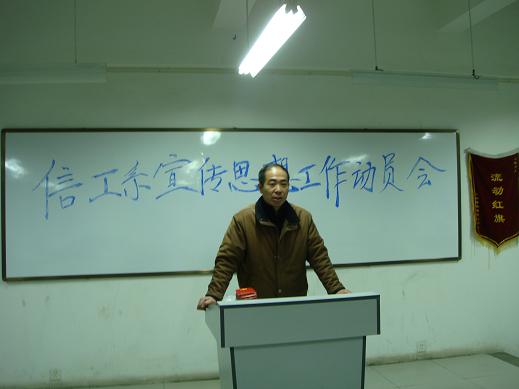 信工系宣传思想工作动员会
流动红旗